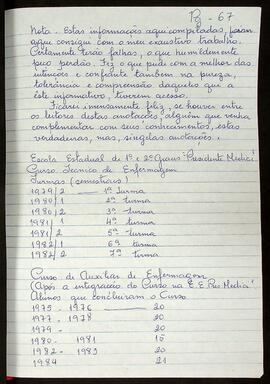 Pg - 67
Nota - Estas informações aqui compiladas, foram
o que consegui com o meu exaustivo trabalho.
Certamente terão falhas, o que humildemente
peço perdão. Fiz o que pude com a melhor das
intenções e confiante também na pureza,
tolerância e compreensão daqueles que a
este informativo, tiverem acesso.
Ficarei imensamente feliz, se houver entre
os leitores destas anotações, alguém que venha
complementar com seus conhecimentos, estas
verdadeiras, mas, singelas anotações.
Escola Estadual de 1º e 2º Graus "Presidente Médici"
Curso Técnico de Enfermagem
Turmas (semestrais)
1979/2 - 1ª turma
1980/1 2ª turma
1980/2 3ª turma
1981/1 4ª turma
1981/2 5ª turma
1982/1 6ª turma
1982/2 7ª turma
Curso de Auxiliar de Enfermagem
(Após a integração do Curso na E. E. Pres Médici)
Alunos que concluíram o Curso
1975 - 1976 20
1977 - 1978 20
1979 - 20
1980 - 1981 15
1982 - 1983 20
1984 21